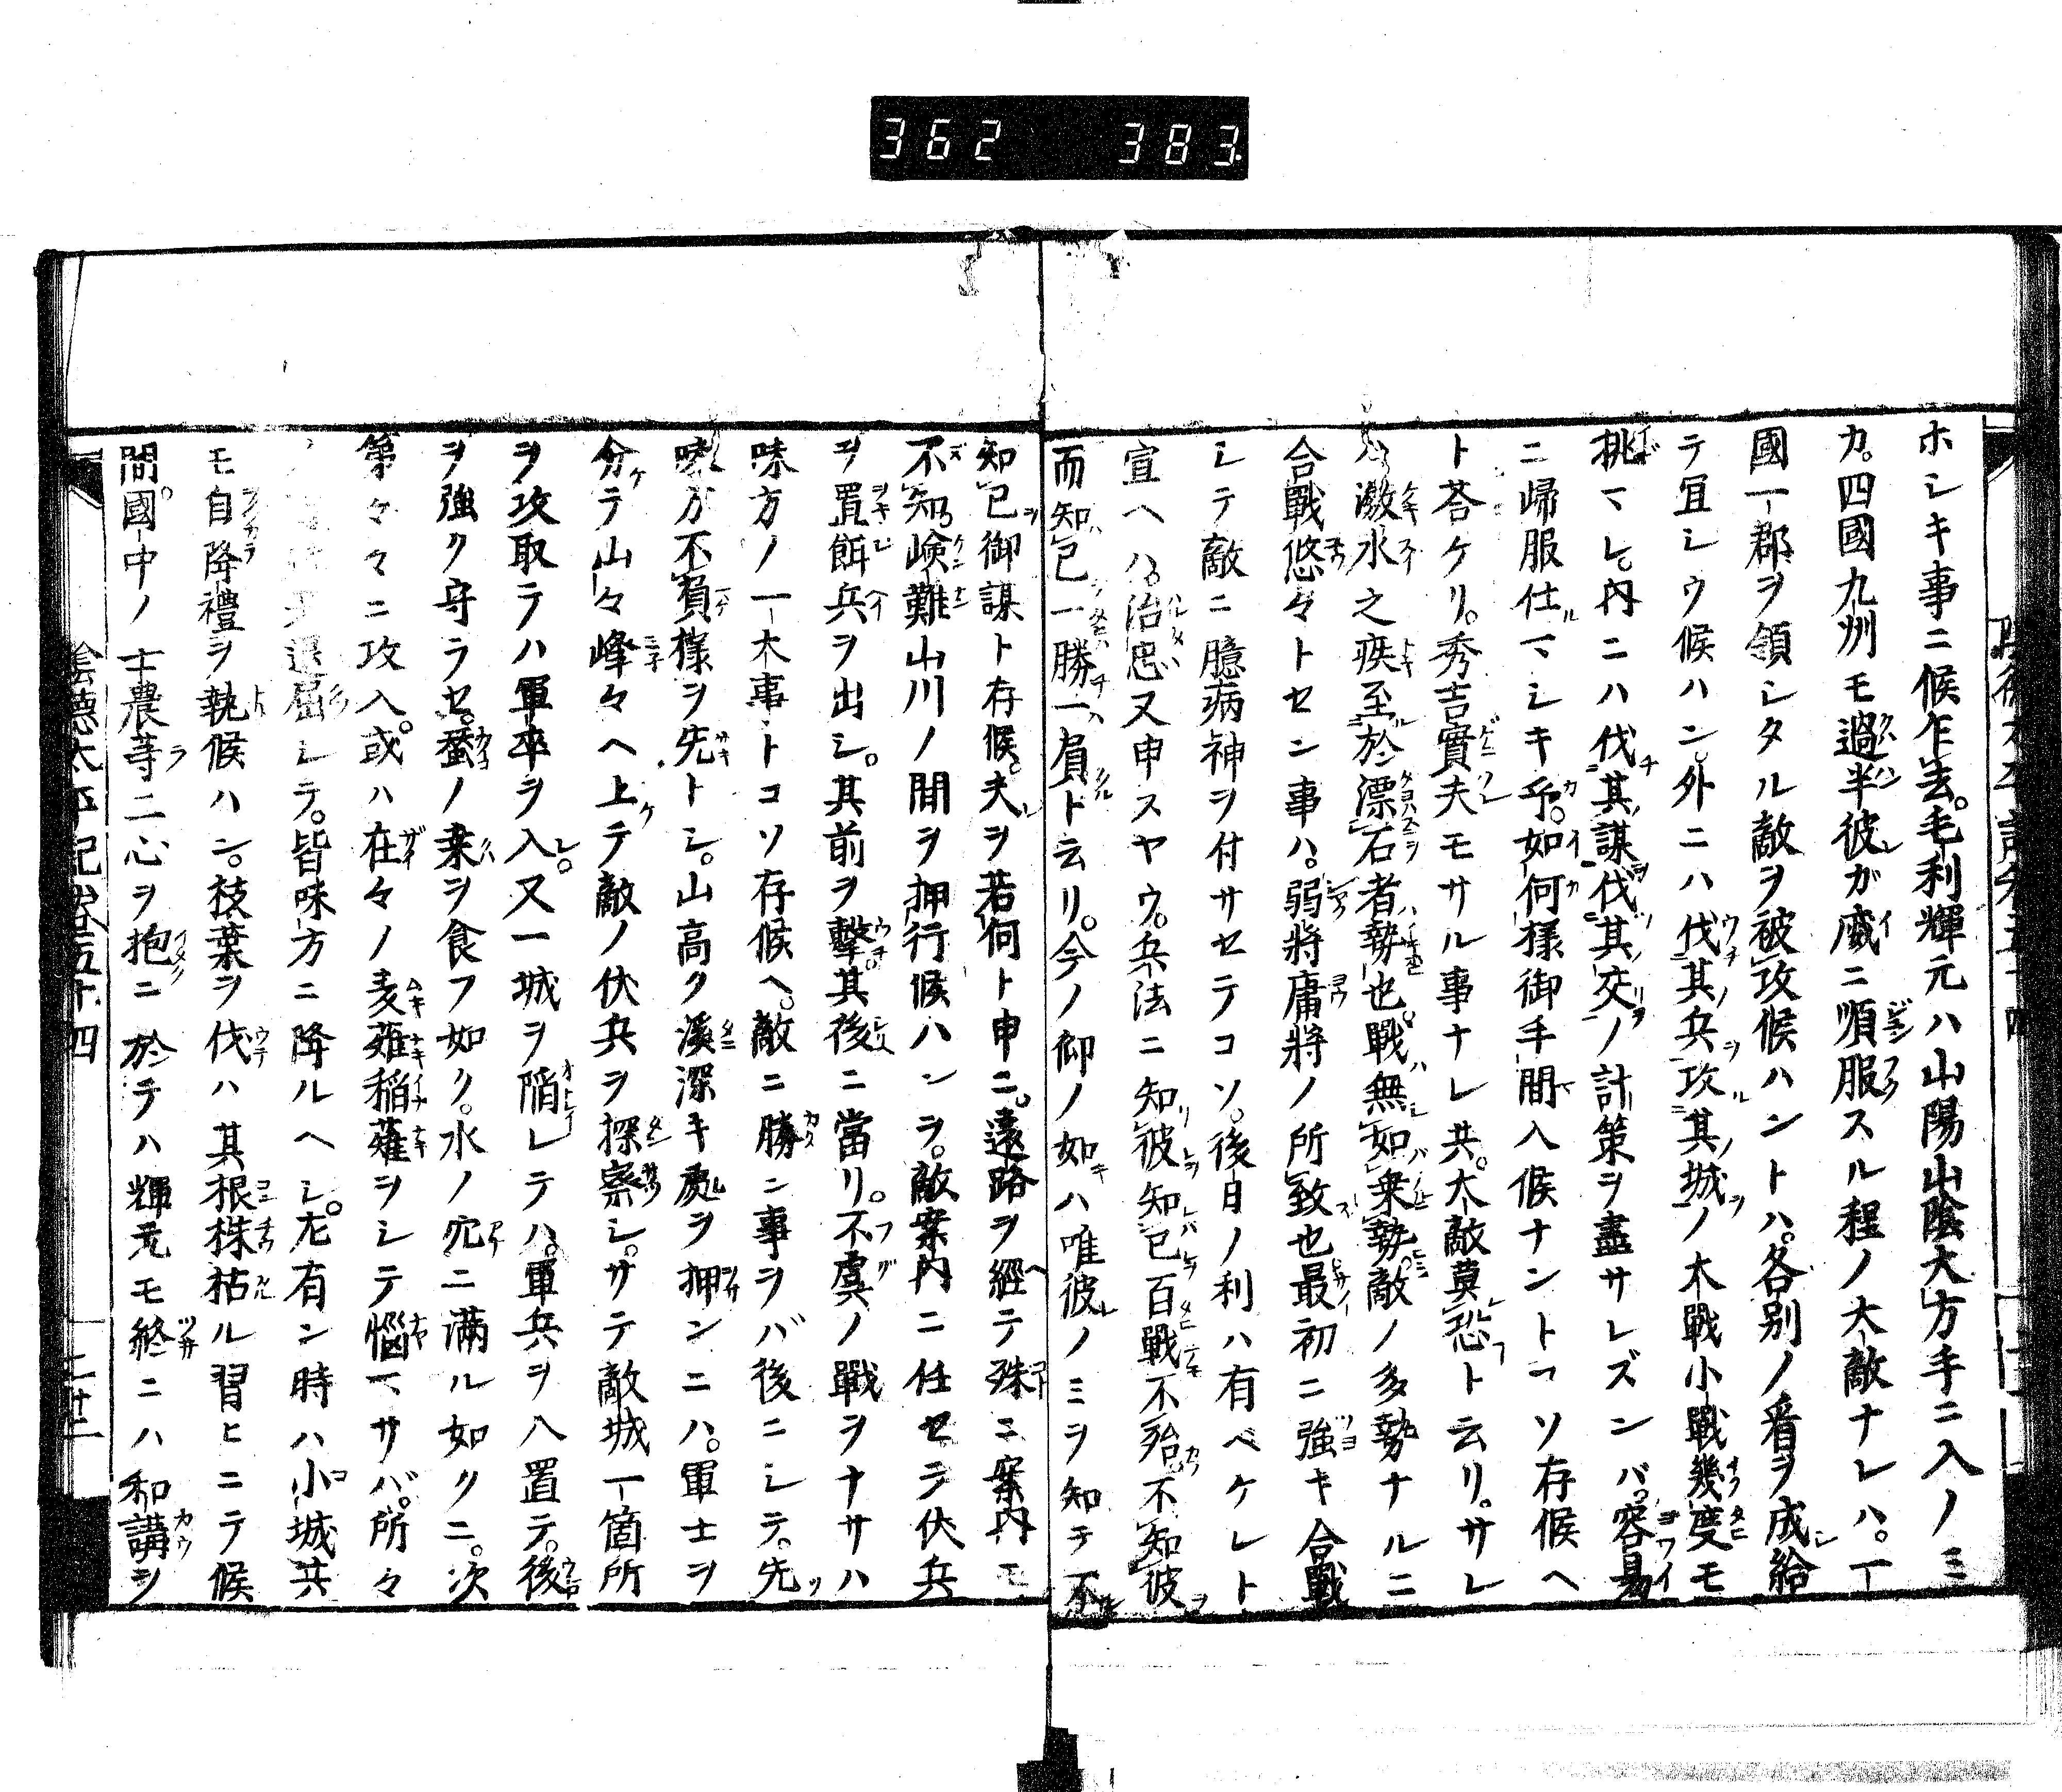 362 383
ホシキ事ニ候乍去。毛利輝元ハ山陽山陰大方手ニ入ノミ
カ。四國九州モ過半彼ガ威ニ順服スル程ノ大敵ナレハ。一
國一郡ヲ領シタル敵ヲ被攻候ハントハ。各別ノ看ヲ成給
テ宜シウ候ハン。外ニハ伐其兵攻其城ノ大戰小戰幾度モ
挑マレ。内ニハ伐其謀伐其交ノ計策ヲ盡サレズンバ。容易
ニ歸服仕マシキ乎。如何樣御手間入候ナントコソ存候ヘ
ト荅ケリ。秀吉實夫モサル事ナレ共。大敵莫恐ト云リ。サレ
激水之疾至於漂石者勢也。戰無如乗勢。敵ノ多勢ナルニ
合戰悠々トセン事ハ。弱將庸將ノ所致也最初ニ強キ合戰
シテ敵ニ臆病神ヲ付サセテコソ。後日ノ利ハ有ベケレト
宣ヘハ。治忠又申スヤウ。兵法ニ知彼知已百戰不殆不知彼
而知已一勝一負ト云リ。今ノ御ノ如ハ唯彼ノミヲ知テ不
知已御謀ト存候。夫ヲ若何ト申ニ。遠路ヲ經テ殊ニ案内モ
不知嶮難山川ノ間ヲ押行候ハンヲ。敵案内ニ任セテ伏兵
ヲ置餌兵ヲ出シ。其前ヲ撃其後ニ當リ。不虞ノ戰ヲナサハ
味方ノ一大事トコソ存候ヘ。敵ニ勝ン事ヲバ後ニシテ。先
味方不負樣ヲ先トシ。山高ク溪深キ處ヲ押ンニハ。軍士ヲ
分テ山々峰々ヘ上テ敵ノ伏兵ヲ探察シ。サテ敵城一箇所
ヲ攻取テハ軍卒ヲ入。又一城ヲ陥レテハ。軍兵ヲ入置テ。後
ヲ強ク守ラセ。蚕ノ桒ヲ食フ如ク。水ノ穴ニ満ル如クニ。次
第々々ニ攻入。或ハ在々ノ麦薙稲薙ヲシテ惱マサバ。所々
退屈シテ。皆味方ニ降ルヘシ。尤有ン時ハ小城共
モ自降禮ヲ執候ハン。枝葉ヲ伐ハ其根株枯ル習ヒニテ候
間。國中ノ士農等二心ヲ抱ニ於テハ輝元モ終ニハ和講ヲ
陰德太平記卷五十四
二十二